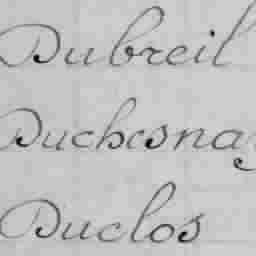 Dubreil
Duchesnay
Duclos